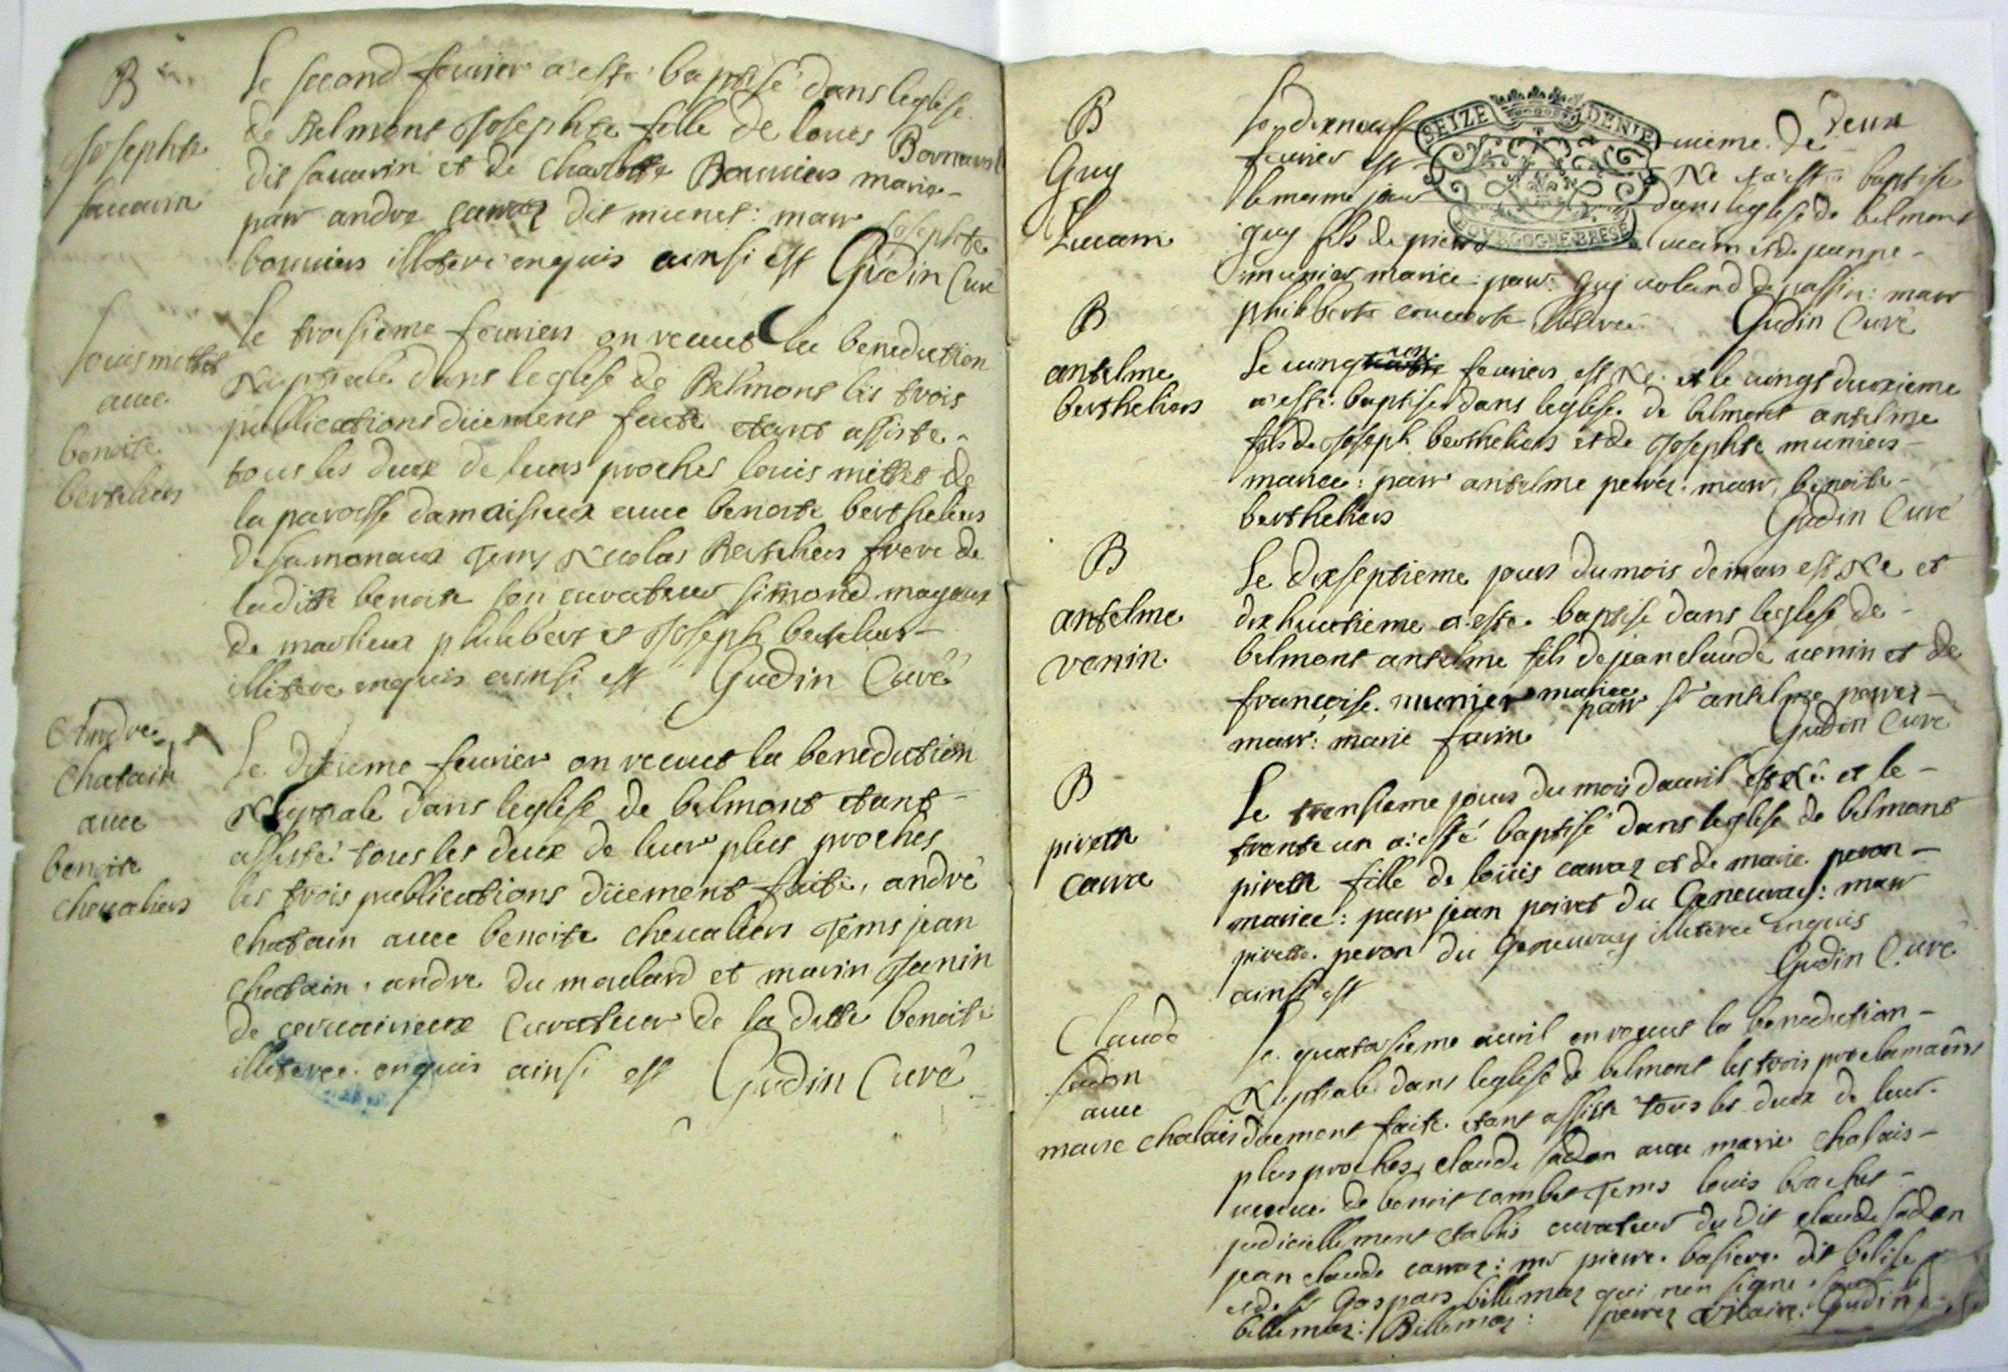 B
Josephte
sauarin
Le second feurier a esté baptisé dans leglise
de Belmont Josephte fille de loues
dit sauarin et de charlotte Bouuiers mariee
parr andre carraz dit munet: marr Josephte
bouuiers illiteré enquis ainsi est Gudin Curé
louis mettet
auec
benoite
bertheliers
Le troisieme feuriers on receut la benediction
Nuptiale dans leglise de Belmont les trois
publications düement faite etant assiste
tous les deux de leurs proches louis mettet de
la paroisse damaisieux auec benoite bertheliers
de samonaux Tems Nicolas Berteliers frere de
ladite benoite son curateur simond mayeux
de marlieux philibert et Joseph berteliers
illitere enquis ainsi est Gudin Curé
Andre
chatain
auec
benoite
cheualiers
Le dixieme feurier on receut la benediction
Nuptiale dans leglise de belmont etant
assisté tous les deux de leur plus proches
les trois publications düement faite, andré
chatain auec benoite cheualiers Tems jean
chatain andre du molard et marin Janin
de ceruairieux Curateur de la ditte benoite
illiteree enquis ainsi est Gudin Curé
deux
SEIZE DENIE
BOVRGOGNE BRESE
B
Guy
Luam
Le dixneuf uieme de
feurier est Ne et a esté baptise
le meme jour dans leglise de belmont
guy fils de pierre Luam et de jeanne
munier mariee: parr: Guy uoland de passin: marr
philiberte couuerte illiteree Gudin Curé
B
antelme
bertheliers
Le uingt un feuriers est Ne et le uingt deuxieme
a esté baptise dans leglise de belmont antelme
fils de Joseph bertheliers et de Josephte muniers
mariee: parr antelme perraz: marr benoite
bertheliers Gudin Curé
B
antelme
venin
Le dixseptieme jour du mois de mars est Ne et
dixhuitieme a este baptise dans leglise de
belmont antelme fils de jean claude uenin et de
françoise munier mariee parr sr antelme perrez
marr: marie farin Gudin Curé
B
pirette
carra
Le trensieme jour du mois dauril est Né et le
trente un a esté baptisé dans leglise de belmont
pirette fille de loüis carraz et de marie peron
mariee: parr jean poiret du Geneuray: marr
pirette peron du Geneuray illiteree enquis
ainsi est Gudin Curé
Claude
sadon
auec
marie chalais
Le quatorsieme auril on receut la benediction
Nuptiale dans leglise de belmont les trois proclamaõns
düement faite etant assiste tous les deux de leur
plus proches, claude sadon auec marie chalais
ueuue de benoit combet Tems louis brachet
judiciellement etablis curateur du dit claude sadon
jean claude carraz: mr pierre basiere dit belisle
et de sr Gaspars billemaz qui non signe
billemaz: Billemaz: perrez Vicaire: Gudin